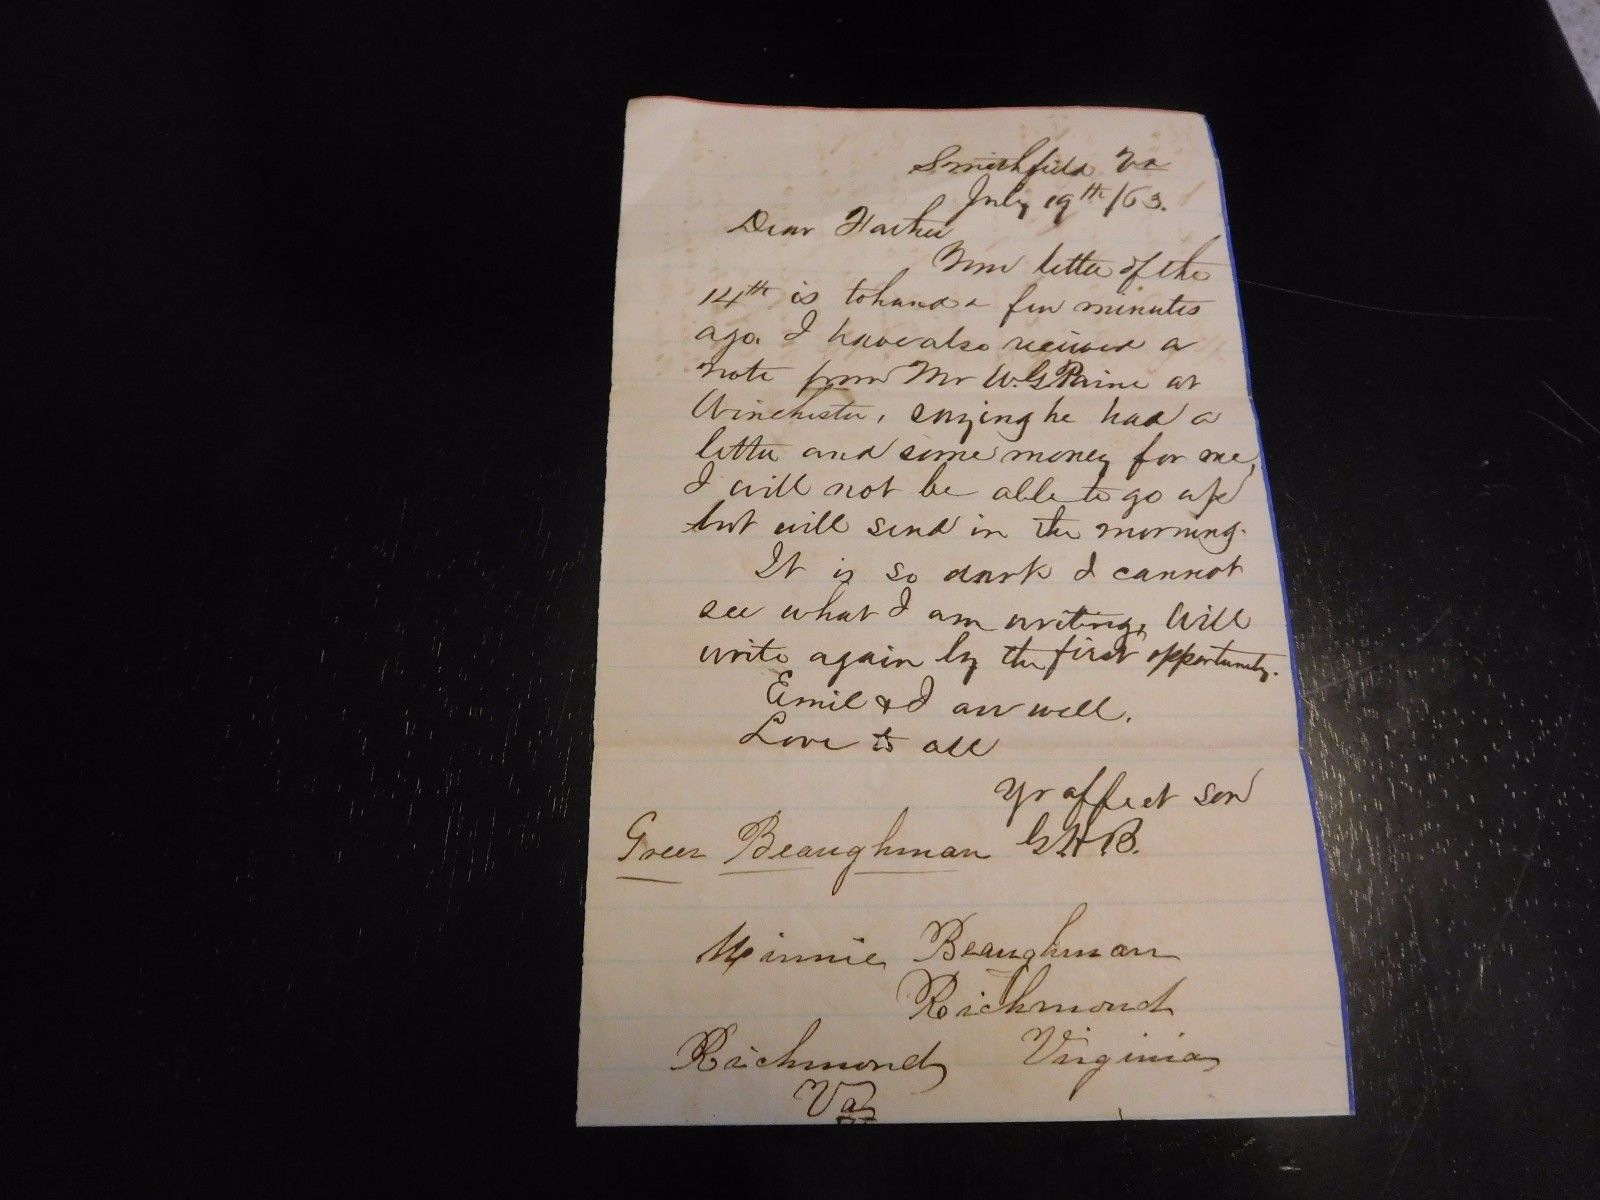 Smithfield Va
July 19th /63.
Dear Father
Your letter of the
14th is to hand a few minutes
ago. I have also recieved a
note from Mr W. G Paine at
Winchester, saying he had a
letter and some money for me,
I will not be able to go up
but will send in the morning.
It is so dark I cannot
see what I am writing, Will
write again by the first opportunity.
Emil & I are well.
Love to all
Yr affect son
G. H. B.
Greer Beaughman
Minnie Beaughman
Richmond
Richmond Virginia
Va